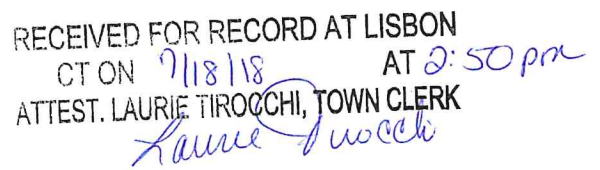 RECEIVED FOR RECORD AT LISBON
CT ON 7/18/18 AT 2:50 pm
ATTEST. LAURIE TIROCCHI, TOWN CLERK
Laurie Tirocchi